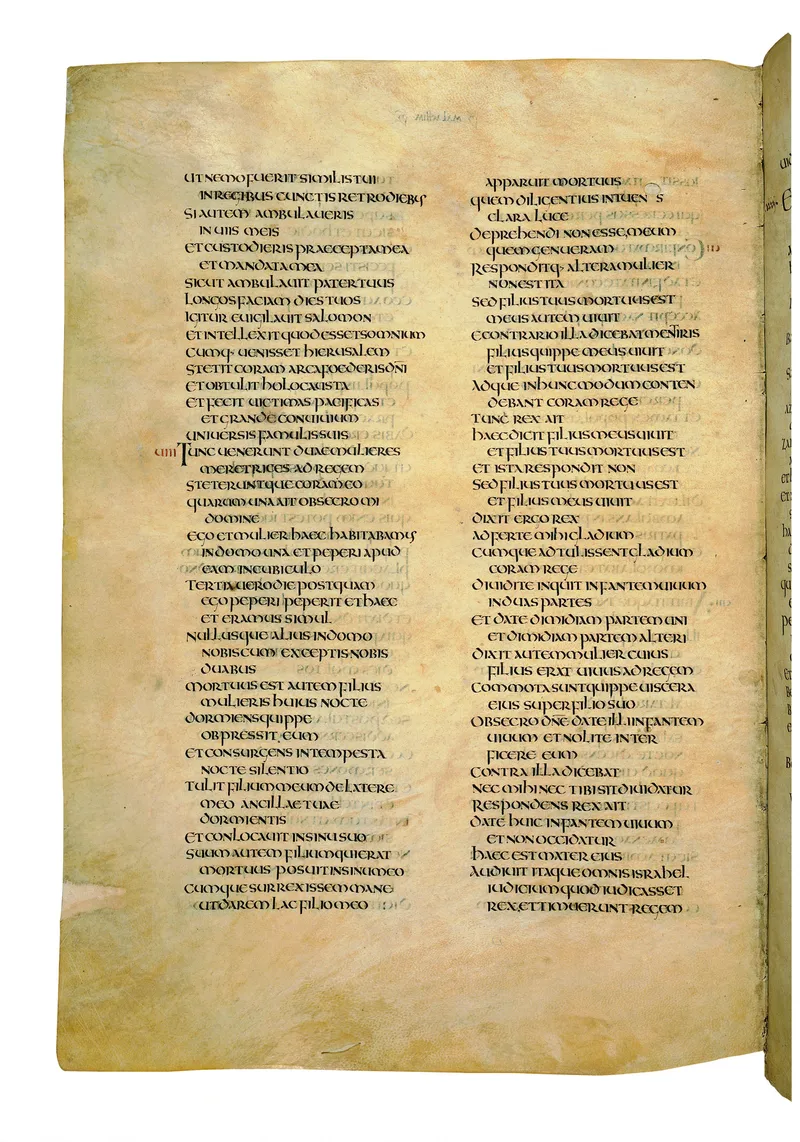 UT NEMO FUERIT SIMILIS TUI
IN REGIBUS CUNCTIS RETRO DIEBUS
SI AUTEM AMBULAUERIS
IN UIIS MEIS
ET CUSTODIERIS PRAECEPTA MEA
ET MANDATA MEA
SICUT AMBULAUIT PATER TUUS
LONGOS FACIAM DIES TUOS
IGITUR EUIGILAUIT SALOMON
ET INTELLEXIT QUOD ESSET SOMNIUM
CUMQ· UENISSET HIERUSALEM
STETIT CORAM ARCA FOEDERIS DÑI
ET OBTULIT HOLOCAUSTA
ET FECIT UICTIMAS PACIFICAS
ET GRANDE CONUIUIUM
UNIUERSIS FAMULIS SUIS
UIIII TUNC UENERUNT DUAE MULIERES
MERETRICES AD REGEM
STETERUNTQUE CORAM EO
QUARUM UNA AIT OBSECRO MI
DOMINE
EGO ET MULIER HAEC HABITABAMUS
IN DOMO UNA ET PEPERI APUD
EAM IN CUBICULO
TERTIA UERO DIE POSTQUAM
EGO PEPERI PEPERIT ET HAEC
ET ERAMUS SIMUL
NULLUSQUE ALIUS IN DOMO
NOBISCUM EXCEPTIS NOBIS
DUABUS
MORTUUS EST AUTEM FILIUS
MULIERIS HUIUS NOCTE
DORMIENS QUIPPE
OBPRESSIT EUM
ET CONSURGENS INTEMPESTA
NOCTE SILENTIO
TULIT FILIUM MEUM DE LATERE
MEO ANCILLAE TUAE
DORMIENTIS
ET CONLOCAUIT IN SINU SUO
SUUM AUTEM FILIUM QUI ERAT
MORTUUS POSUIT IN SINU MEO
CUMQUE SURREXISSEM MANE
UT DAREM LAC FILIO MEO
APPARUIT MORTUUS
QUEM DILIGENTIUS INTUEN S
CLARA LUCE
DEPREHENDI NON ESSE MEUM
QUEM GENUERAM
RESPONDITQ· ALTERA MULIER
NON EST ITA
SED FILIUS TUUS MORTUUS EST
MEUS AUTEM UIUIT
E CONTRARIO ILLA DICEBAT MENTIRIS
FILIUS QUIPPE MEUS UIUIT
ET FILIUS TUUS MORTUUS EST
ADQUE IN HUNC MODUM CONTEN
DEBANT CORAM REGE
TUNC REX AIT
HAEC DICIT FILIUS MEUS UIUIT
ET FILIUS TUUS MORTUUS EST
ET ISTA RESPONDIT NON
SED FILIUS TUUS MORTUUS EST
ET FILIUS MEUS UIUIT
DIXIT ERGO REX
ADFERTE MIHI GLADIUM
CUMQUE ADTULISSENT GLADIUM
CORAM REGE
DIUIDITE INQUIT INFANTEM UIUUM
IN DUAS PARTES
ET DATE DIMIDIAM PARTEM UNI
ET DIMIDIAM PARTEM ALTERI
DIXIT AUTEM MULIER CUIUS
FILIUS ERAT UIUUS AD REGEM
COMMOTA SUNT QUIPPE UISCERA
EIUS SUPER FILIO SUO
OBSECRO DÑE DATE ILLI INFANTEM
UIUUM ET NOLITE INTER
FICERE EUM
CONTRA ILLA DICEBAT
NEC MIHI NEC TIBI SIT DIUIDATUR
RESPONDENS REX AIT
DATE HUIC INFANTEM UIUUM
ET NON OCCIDATUR
HAEC EST MATER EIUS
AUDIUIT ITAQUE OMNIS ISRAHEL
IUDICIUM QUOD IUDICASSET
REX ET TIMUERUNT REGEM